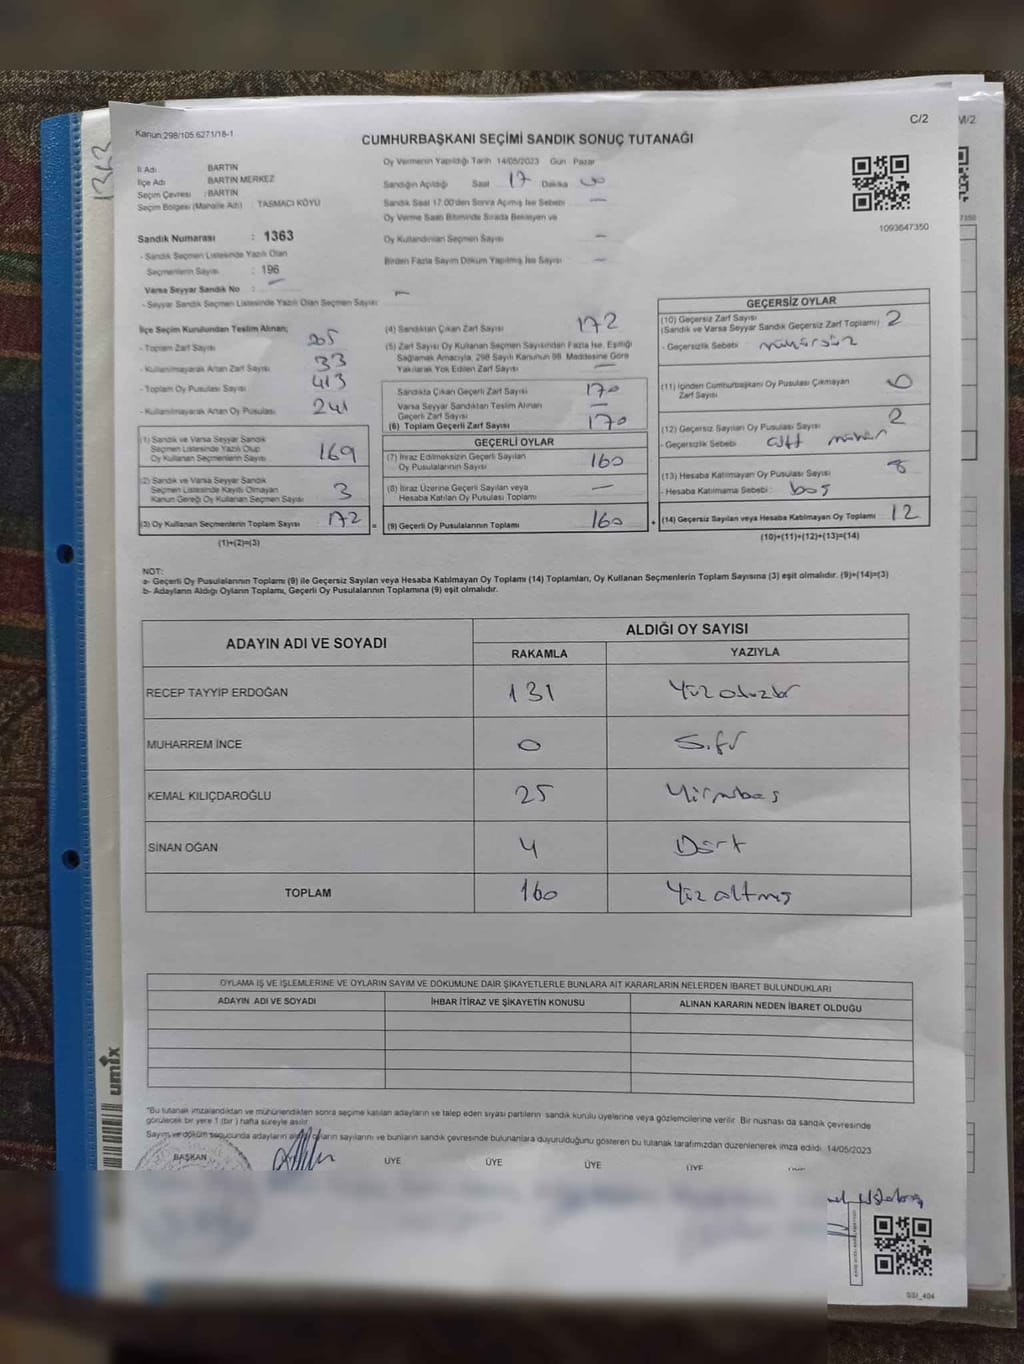 C/2
M/2
Kanun:298/105.6271/18-1
CUMHURBAŞKANI SEÇİMİ SANDIK SONUÇ TUTANAĞI
1313
İl Adı BARTIN
İlçe Adı BARTIN MERKEZ
Seçim Çevresi : BARTIN
Seçim Bölgesi (Mahalle Adı) : TASMACI KÖYÜ
Sandık Numarası : 1363
- Sandık Seçmen Listesinde Yazılı Olan
Seçmenlerin Sayısı : 196
Varsa Seyyar Sandık No :
- Seyyar Sandık Seçmen Listesinde Yazılı Olan Seçmen Sayısı —
Oy Vermenin Yapıldığı Tarih 14/05/2023 Gün Pazar
Sandığın Açıldığı Saat 17 Dakika
Sandık Saat 17.00'den Sonra Açılmış İse Sebebi —
Oy Verme Saati Bitiminde Sırada Bekleyen ve
Oy Kullandırılan Seçmen Sayısı —
Birden Fazla Sayım Döküm Yapılmış İse Sayısı —
1093647350
7350
İlçe Seçim Kurulundan Teslim Alınan;
- Toplam Zarf Sayısı 205
- Kullanılmayarak Artan Zarf Sayısı 33
- Toplam Oy Pusulası Sayısı 413
- Kullanılmayarak Artan Oy Pusulası 241
(1) Sandık ve Varsa Seyyar Sandık
Seçmen Listesinde Yazılı Olup
Oy Kullanan Seçmenlerin Sayısı 169
(2) Sandık ve Varsa Seyyar Sandık
Seçmen Listesinde Kaydı Olmayan
Kanun Gereği Oy Kullanan Seçmen Sayısı 3
(3) Oy Kullanan Seçmenlerin Toplam Sayısı 172 =
(1)+(2)=(3)
(4) Sandıktan Çıkan Zarf Sayısı 172
(5) Zarf Sayısı Oy Kullanan Seçmen Sayısından Fazla İse, Eşitliği
Sağlamak Amacıyla, 298 Sayılı Kanunun 98. Maddesine Göre
Yakılarak Yok Edilen Zarf Sayısı —
Sandıkta Çıkan Geçerli Zarf Sayısı 170
Varsa Seyyar Sandıktan Teslim Alınan
Geçerli Zarf Sayısı —
(6) Toplam Geçerli Zarf Sayısı 170
GEÇERLİ OYLAR
(7) İtiraz Edilmeksizin Geçerli Sayılan
Oy Pusulalarının Sayısı 160
(8) İtiraz Üzerine Geçerli Sayılan veya
Hesaba Katılan Oy Pusulası Toplamı —
(9) Geçerli Oy Pusulalarının Toplamı 160 +
GEÇERSİZ OYLAR
(10) Geçersiz Zarf Sayısı
(Sandık ve Varsa Seyyar Sandık Geçersiz Zarf Toplamı) 2
- Geçersizlik Sebebi mühürsüz
(11) İçinden Cumhurbaşkanı Oy Pusulası Çıkmayan
Zarf Sayısı 0
(12) Geçersiz Sayılan Oy Pusulası Sayısı 2
- Geçersizlik Sebebi çift mühür
(13) Hesaba Katılmayan Oy Pusulası Sayısı 8
- Hesaba Katılmama Sebebi boş
(14) Geçersiz Sayılan veya Hesaba Katılmayan Oy Toplamı 12
(10)+(11)+(12)+(13)=(14)
NOT:
a- Geçerli Oy Pusulalarının Toplamı (9) ile Geçersiz Sayılan veya Hesaba Katılmayan Oy Toplamı (14) Toplamları, Oy Kullanan Seçmenlerin Toplam Sayısına (3) eşit olmalıdır. (9)+(14)=(3)
b- Adayların Aldığı Oyların Toplamı, Geçerli Oy Pusulalarının Toplamına (9) eşit olmalıdır.
ADAYIN ADI VE SOYADI ALDIĞI OY SAYISI
RAKAMLA YAZIYLA
RECEP TAYYİP ERDOĞAN 131 Yüzotuzbir
MUHARREM İNCE 0 Sıfır
KEMAL KILIÇDAROĞLU 25 Yirmibeş
SİNAN OĞAN 4 Dört
TOPLAM 160 Yüzaltmış
OYLAMA İŞ VE İŞLEMLERİNE VE OYLARIN SAYIM VE DÖKÜMÜNE DAİR ŞİKAYETLERLE BUNLARA AİT KARARLARIN NELERDEN İBARET BULUNDUKLARI
ADAYIN ADI VE SOYADI İHBAR İTİRAZ VE ŞİKAYETİN KONUSU ALINAN KARARIN NEDEN İBARET OLDUĞU
umix
"Bu tutanak imzalandıktan ve mühürlendikten sonra seçime katılan adayların ve talep eden siyasi partilerin sandık kurulu üyelerine veya gözlemcilerine verilir. Bir nüshası da sandık çevresinde
görülecek bir yere 1 (bir) hafta süreyle asılır.
Sayım ve döküm sonucunda adayların aldığı oyların sayılarını ve bunların sandık çevresinde bulunanlara duyurulduğunu gösteren bu tutanak tarafımızdan düzenlenerek imza edildi. 14/05/2023
BAŞKAN ÜYE ÜYE ÜYE ÜYE
SSI_404